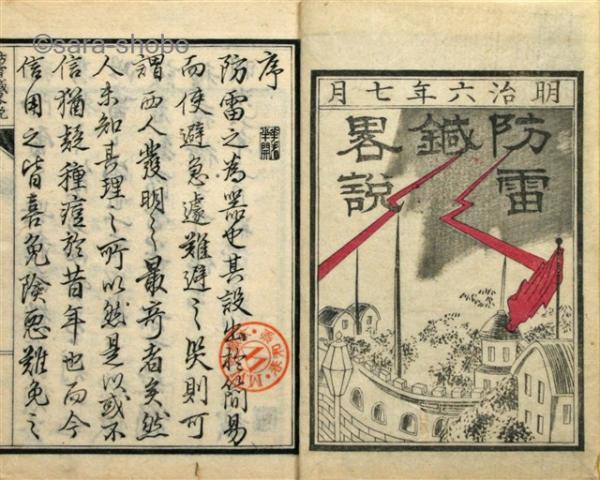 明治六年七月
防雷
鍼
畧説
序
防雷之為器也其設出於簡易
而使避急遽難避之災則可
謂西人發明之最奇者矣然
人未知其理之所以然是以或不
信猶疑種痘於昔年也而今
信用之皆喜免險惡難免之
©sara-shobo